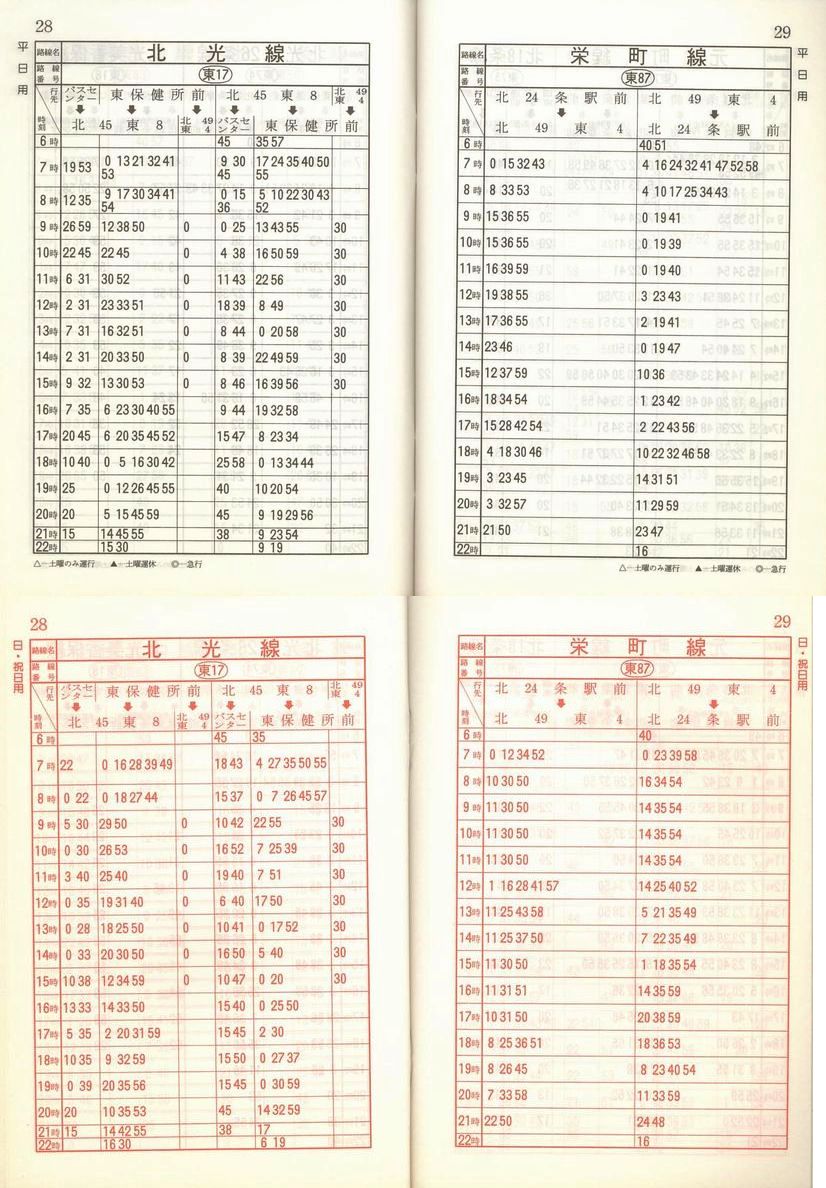 28
平日用
路線名 北光線
路線番号 東17
行先 時刻 バスセンター 東保健所前 北45東8 北49東4
北45東8 北49東4 バスセンター 東保健所前
6時 45 35 57
7時 19 53 0 13 21 32 41 53 9 30 45 17 24 35 40 50 55
8時 12 35 9 17 30 34 41 54 0 15 36 5 10 22 30 43 52
9時 26 59 12 38 50 0 0 25 13 43 55 30
10時 22 45 22 45 0 4 38 16 50 59 30
11時 6 31 30 52 0 11 43 22 56 30
12時 2 31 23 33 51 0 18 39 8 49 30
13時 7 31 16 32 51 0 8 44 0 20 58 30
14時 2 31 20 33 50 0 8 39 22 49 59 30
15時 9 32 13 30 53 0 8 46 16 39 56 30
16時 7 35 6 23 30 40 55 9 44 19 32 58
17時 20 45 6 20 35 45 52 15 47 8 23 34
18時 10 40 0 5 16 30 42 25 58 0 13 34 44
19時 25 0 12 26 45 55 40 10 20 54
20時 20 5 15 45 59 45 9 19 29 56
21時 15 14 45 55 38 9 23 54
22時 15 30 9 19
△―土曜のみ運行 ▲―土曜運休 ◎―急行
29
平日用
路線名 栄町線
路線番号 東87
行先 時刻 北24条駅前 北49東4
北49東4 北24条駅前
6時 40 51
7時 0 15 32 43 4 16 24 32 41 47 52 58
8時 8 33 53 4 10 17 25 34 43
9時 15 36 55 0 19 41
10時 15 36 55 0 19 39
11時 16 39 59 0 19 40
12時 19 38 55 3 23 43
13時 17 36 55 2 19 41
14時 23 46 0 19 47
15時 12 37 59 10 36
16時 18 34 54 1 23 42
17時 15 28 42 54 2 22 43 56
18時 4 18 30 46 10 22 32 46 58
19時 3 23 45 14 31 51
20時 3 32 57 11 29 59
21時 21 50 23 47
22時 16
△―土曜のみ運行 ▲―土曜運休 ◎―急行
28
日・祝日用
路線名 北光線
路線番号 東17
行先 時刻 バスセンター 東保健所前 北45東8 北49東4
北45東8 北49東4 バスセンター 東保健所前
6時 45 35
7時 22 0 16 28 39 49 18 43 4 27 35 50 55
8時 0 22 0 18 27 44 15 37 0 7 26 45 57
9時 5 30 29 50 0 10 42 22 55 30
10時 0 30 26 53 0 16 52 7 25 39 30
11時 3 40 25 40 0 19 40 7 51 30
12時 0 35 19 31 40 0 6 40 17 50 30
13時 0 28 18 25 50 0 10 41 0 17 52 30
14時 0 33 20 30 50 0 16 50 5 40 30
15時 10 38 12 34 59 0 10 47 0 20 30
16時 13 33 14 33 50 15 40 0 25 50
17時 5 35 2 20 31 59 15 45 2 30
18時 10 35 9 32 59 15 50 0 27 37
19時 0 39 20 35 56 15 45 0 30 59
20時 20 10 35 53 45 14 32 59
21時 15 14 42 55 38 17
22時 16 30 6 19
29
日・祝日用
路線名 栄町線
路線番号 東87
行先 時刻 北24条駅前 北49東4
北49東4 北24条駅前
6時 40
7時 0 12 34 52 0 23 39 58
8時 10 30 50 16 34 54
9時 11 30 50 14 35 54
10時 11 30 50 14 35 54
11時 11 30 50 14 35 54
12時 1 16 28 41 57 14 25 40 52
13時 11 25 43 58 5 21 35 49
14時 11 25 37 50 7 22 35 49
15時 11 30 50 1 18 35 54
16時 11 31 51 14 35 59
17時 10 31 50 20 38 59
18時 8 25 36 51 18 36 53
19時 8 26 45 8 23 40 54
20時 7 33 58 11 33 59
21時 22 50 24 48
22時 16